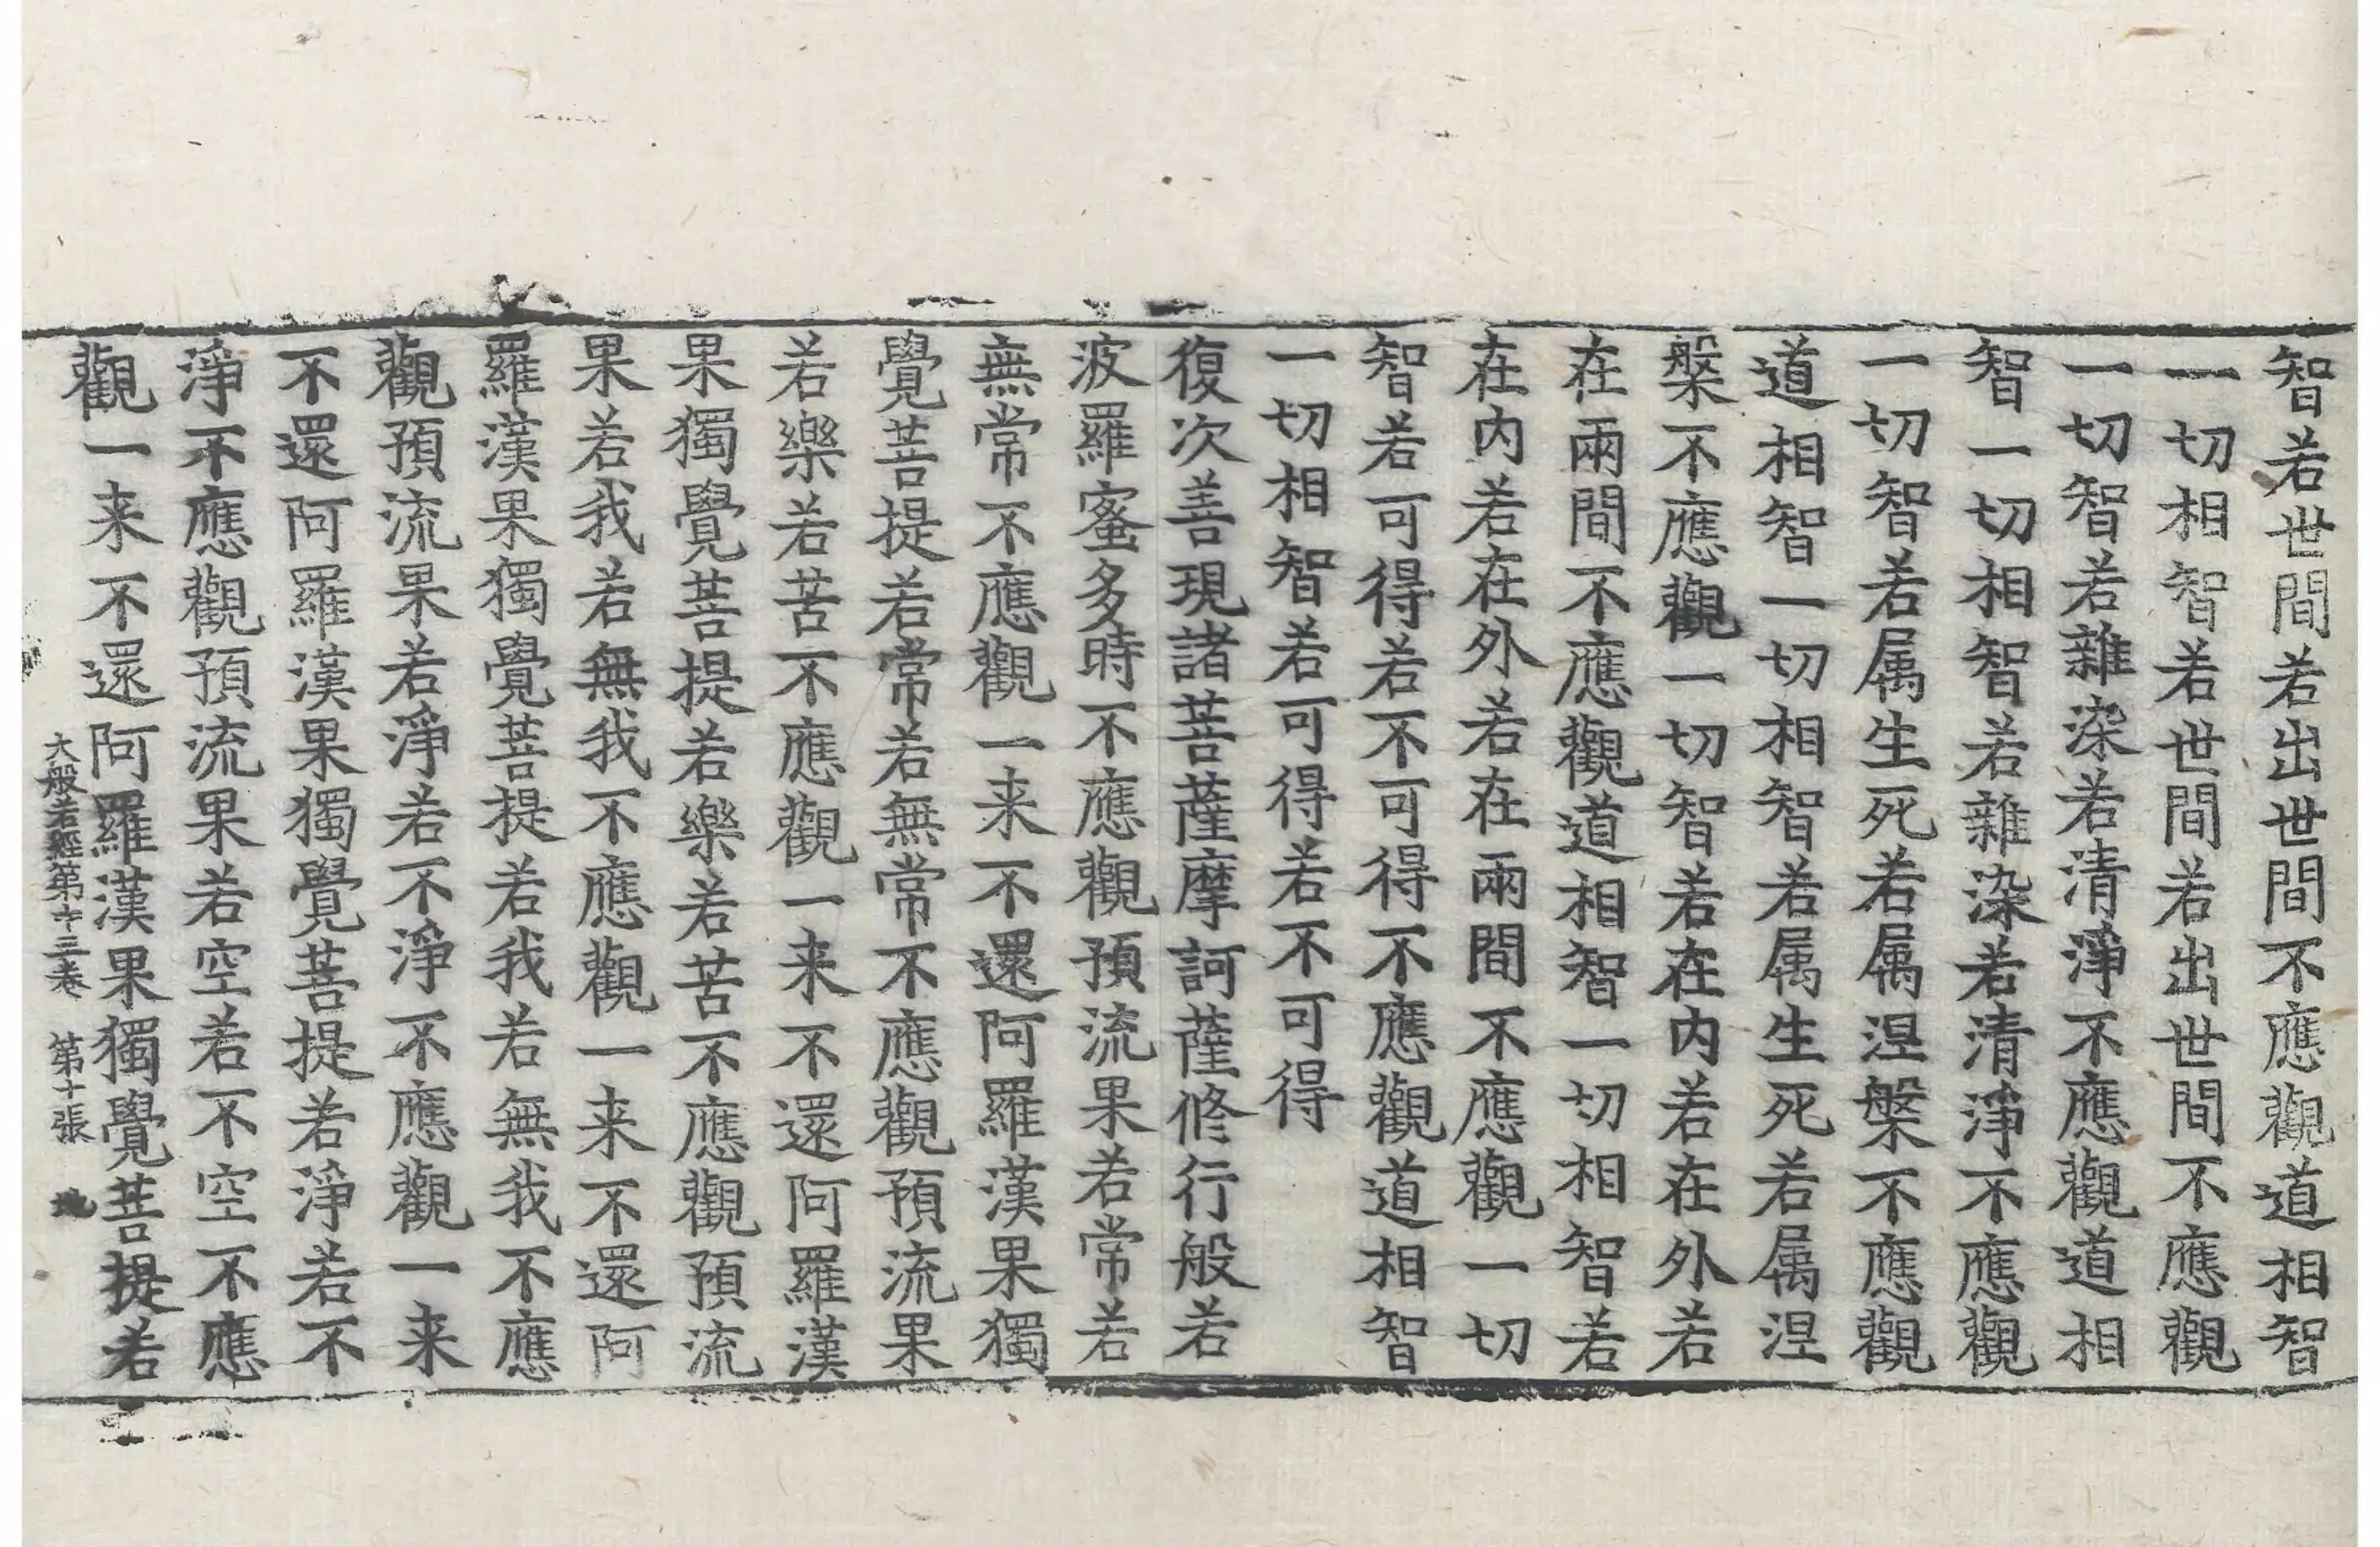 智若世間若出世間不應觀道相智
一切相智若世間若出世間不應觀
一切智若雜染若清淨不應觀道相
智一切相智若雜染若清淨不應觀
一切智若属生死若属涅槃不應觀
道相智一切相智若属生死若属涅
槃不應觀一切智若在内若在外若
在兩間不應觀道相智一切相智若
在内若在外若在兩間不應觀一切
智若可得若不可得不應觀道相智
一切相智若可得若不可得
復次善現諸菩薩摩訶薩修行般若
波羅蜜多時不應觀預流果若常若
無常不應觀一来不還阿羅漢果獨
覺菩提若常若無常不應觀預流果
若樂若苦不應觀一来不還阿羅漢
果獨覺菩提若樂若苦不應觀預流
果若我若無我不應觀一来不還阿
羅漢果獨覺菩提若我若無我不應
觀預流果若淨若不淨不應觀一来
不還阿羅漢果獨覺菩提若淨若不
淨不應觀預流果若空若不空不應
觀一来不還阿羅漢果獨覺菩提若
大般若經第十三卷 第十張 地